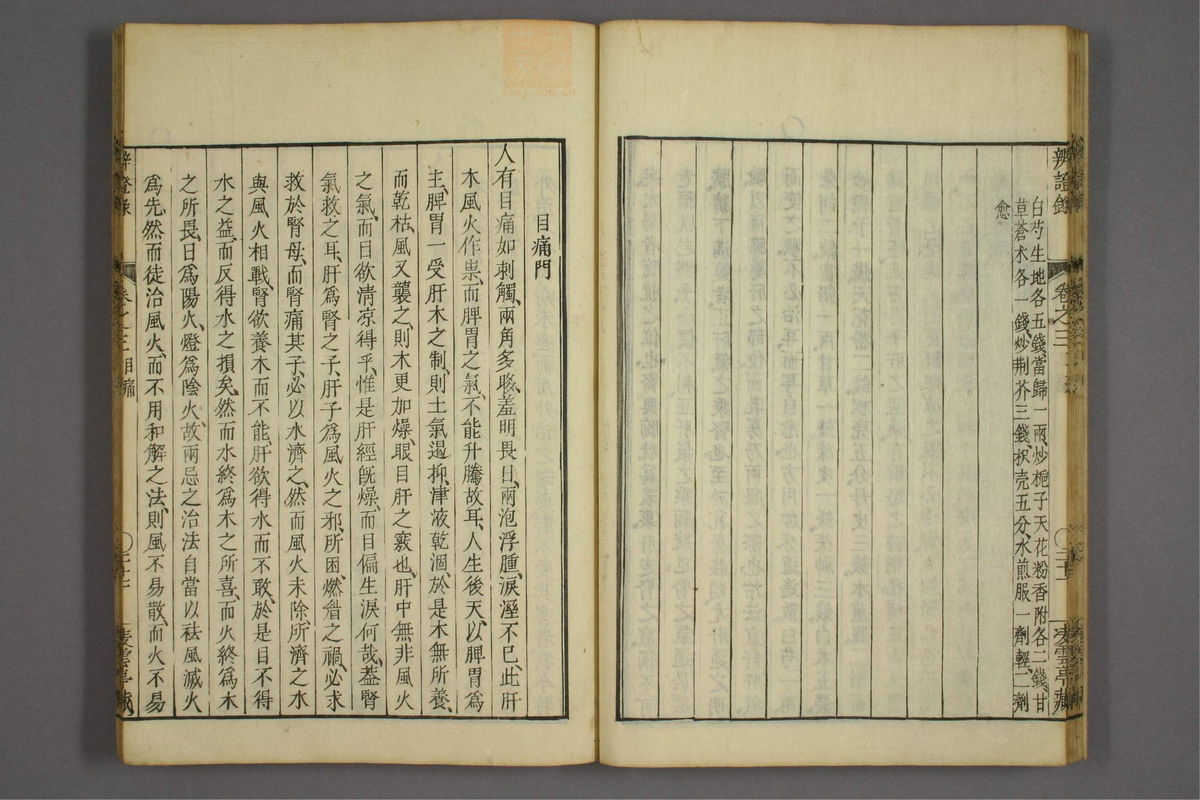 辨證錄 卷之三 二十一 凌雲亭藏
白芍生地各五錢當歸一兩炒梔子天花粉香附各二錢甘
草蒼朮各一錢炒荆芥三錢枳壳五分水煎服一劑輕二劑
愈
目痛門
人有目痛如刺觸兩角多眵羞明畏日兩泡浮腫淚溼不已此肝
木風火作祟而脾胃之氣不能升騰故耳人生後天以脾胃爲
主脾胃一受肝木之制則土氣遏抑津液乾涸於是木無所養
而乾枯風又襲之則木更加燥眼目肝之竅也肝中無非風火
之氣而目欲清凉得乎惟是肝經旣燥而目偏生淚何哉葢腎
氣救之耳肝爲腎之子肝子爲風火之邪所困燃眉之禍必求
救於腎母而腎痛其子必以水濟之然而風火未除所濟之水
與風火相戰腎欲養木而不能肝欲得水而不敢於是目不得
水之益而反得水之損矣然而水終爲木之所喜而火終爲木
之所畏日爲陽火燈爲陰火故兩忌之治法自當以祛風滅火
爲先然而徒治風火而不用和解之法則風不易散而火不易
辨證錄 卷之三 目痛 凌雲亭藏